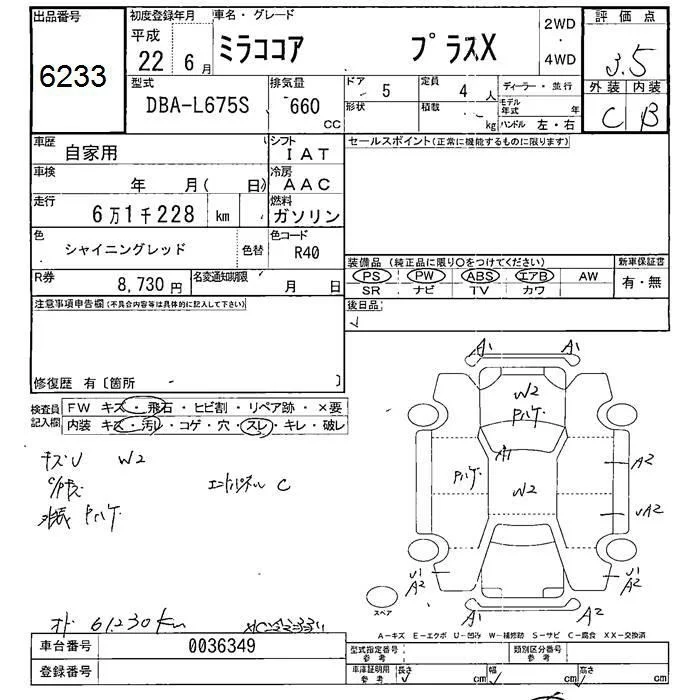 出品番号
6233
初度登録年月
平成
22年 6月
車名・グレード
ミラココア プラスX
2WD
・
4WD
評価点
3.5
外装 内装
C B
型式
DBA-L675S
排気量
660
CC
ドア
5
定員
4 人
形状
積載
kg
ディーラー・並行
モデル年式 年
ハンドル 左・右
車歴
自家用
シフト
IAT
車検
年 月( 日)
冷房
AAC
走行
6万1千228 km
燃料
ガソリン
色
シャイニングレッド
色替
色コード
R40
R券
8,730円
名変通知期限
月 日
セールスポイント(正常に機能するものに限ります)
装備品(純正品に限り○をつけてください)
PS PW ABS エアB AW
SR ナビ TV カワ
新車保証書
有・無
後日品
注意事項申告欄(不具合内容等は具体的に記入して下さい)
修復歴 有〔箇所 〕
検査員記入欄
FW キズ・飛石・ヒビ割・リペア跡・×要
内装 キズ・汚レ・コゲ・穴・スレ・キレ・破レ
キズU W2
エンドパネル C
外装 Pハゲ
オド 61230km
A1 A1
W2
Pハゲ
A1
Pハゲ
W2
A2
UA2
U1
A2
U1
A2
A1 A2
スペア
A−キズ E−エクボ U−凹み W−補修跡 S−サビ C−腐食 XX−交換済
車台番号
0036349
登録番号
型式指定番号
参考
類別区分番号
参考
車庫証明用
参考
長さ cm
幅 cm
高さ cm